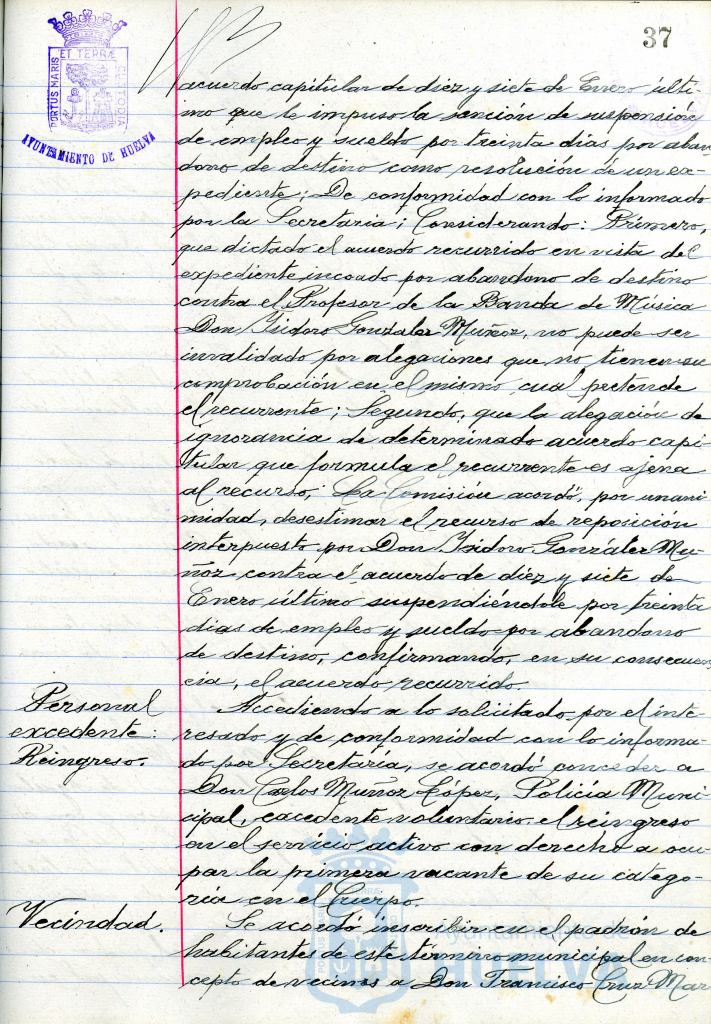 37
PORTUS MARIS
ET TERRÆ
CUSTODIA
AYUNTAMIENTO DE HUELVA
acuerdo capitular de diez y siete de Enero últi-
mo que le impuso la sanción de suspensión
de empleo y sueldo por treinta dias por aban
dono de destino como resolución de un ex-
pediente; De conformidad con lo informado
por la Secretaria; Considerando: Primero,
que dictado el acuerdo recurrido en vista del
expediente incoado por abandono de destino
contra el Profesor de la Banda de Música
Don Isidoro Gonzalez Muñoz, no puede ser
invalidado por alegaciones que no tienen su
comprobación en el mismo cual pretende
el recurrente; Segundo, que la alegación de
ignorancia de determinado acuerdo capi-
tular que formula el recurrente es ajena
al recurso; La Comisión acordó, por unani
midad, desestimar el recurso de reposición
interpuesto por Don Isidoro González Mu-
ñoz contra el acuerdo de diez y siete de
Enero último suspendiéndole por treinta
dias de empleo y sueldo por abandono
de destino, confirmando, en su consecuen
cia, el acuerdo recurrido.
Personal
excedente:
Reingreso.
Accediendo a lo solicitado por el inte-
resado y de conformidad con lo informa-
do por Secretaría, se acordó conceder a
Don Carlos Muñoz López, Policía Muni-
cipal, excedente voluntario, el reingreso
en el servicio activo con derecho a ocu-
par la primera vacante de su catego-
ría en el Cuerpo.
Vecindad.
Se acordó inscribir en el padrón de
habitantes de este término municipal en con-
cepto de vecinos a Don Francisco Cruz Mar
Ayuntamiento de
HUELVA